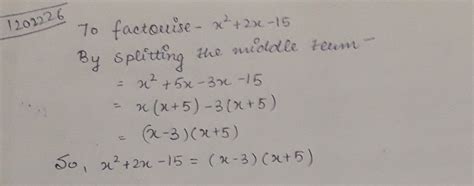 1202226
To factorise - x²+2x-15
By splitting the middle term -
= x²+5x-3x-15
= x(x+5)-3(x+5)
= (x-3)(x+5)
So, x²+2x-15 = (x-3)(x+5)